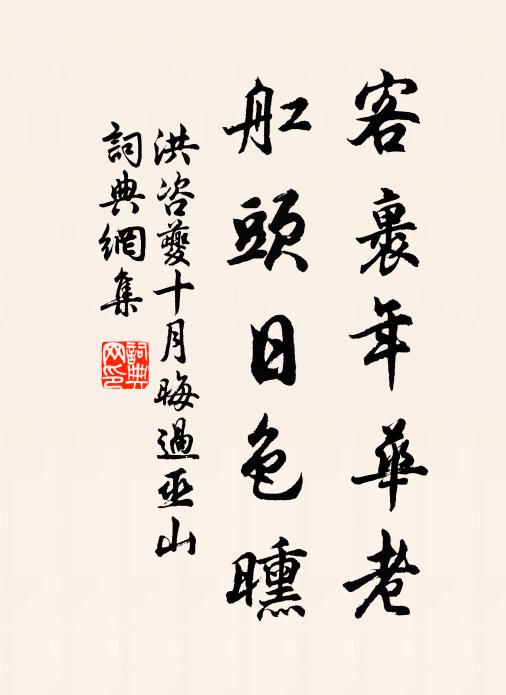 客裏年華老
舡頭日色曛
洪咨夔十月晦過巫山
詞典網集
詞典
网印